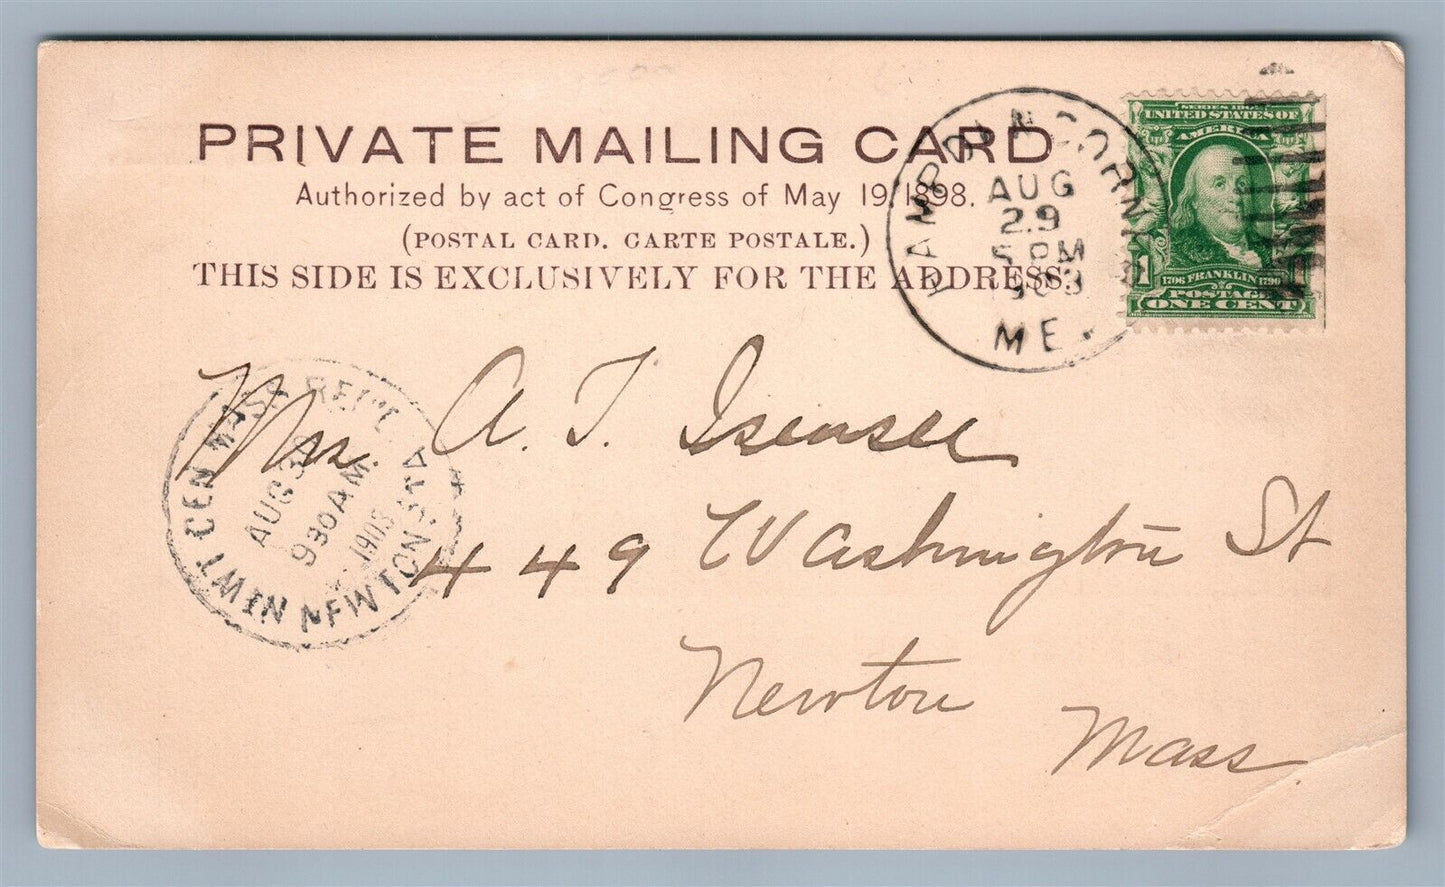 PRIVATE MAILING CARD
Authorized by act of Congress of May 19, 1898.
(POSTAL CARD. CARTE POSTALE.)
THIS SIDE IS EXCLUSIVELY FOR THE ADDRESS.
CORN
AUG
29
5 PM
1903
ME.
SERIES 1902
UNITED STATES OF
AMERICA
1706 FRANKLIN 1790
POSTAGE
1
ONE CENT
MASS REC'D.
AUG 30
930 AM
1903
NEWTON CEN
NEWTON STA
Mrs. A. T. Isensee
449 Washington St
Newton
Mass